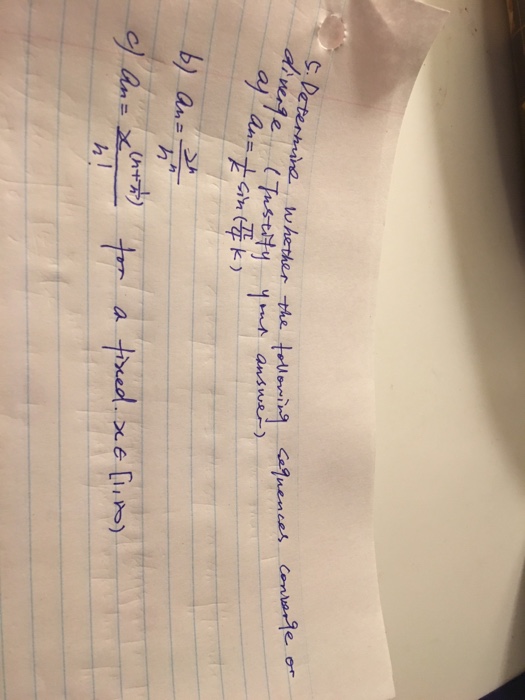 5. Determine whether the following sequences converge or
diverge (Justify your answer)
a) an = 1/k sin(π/4 k)
b) an = 2^n/n
c) an = x^(n+1/n)/n! for a fixed. x ∈ [1,∞)